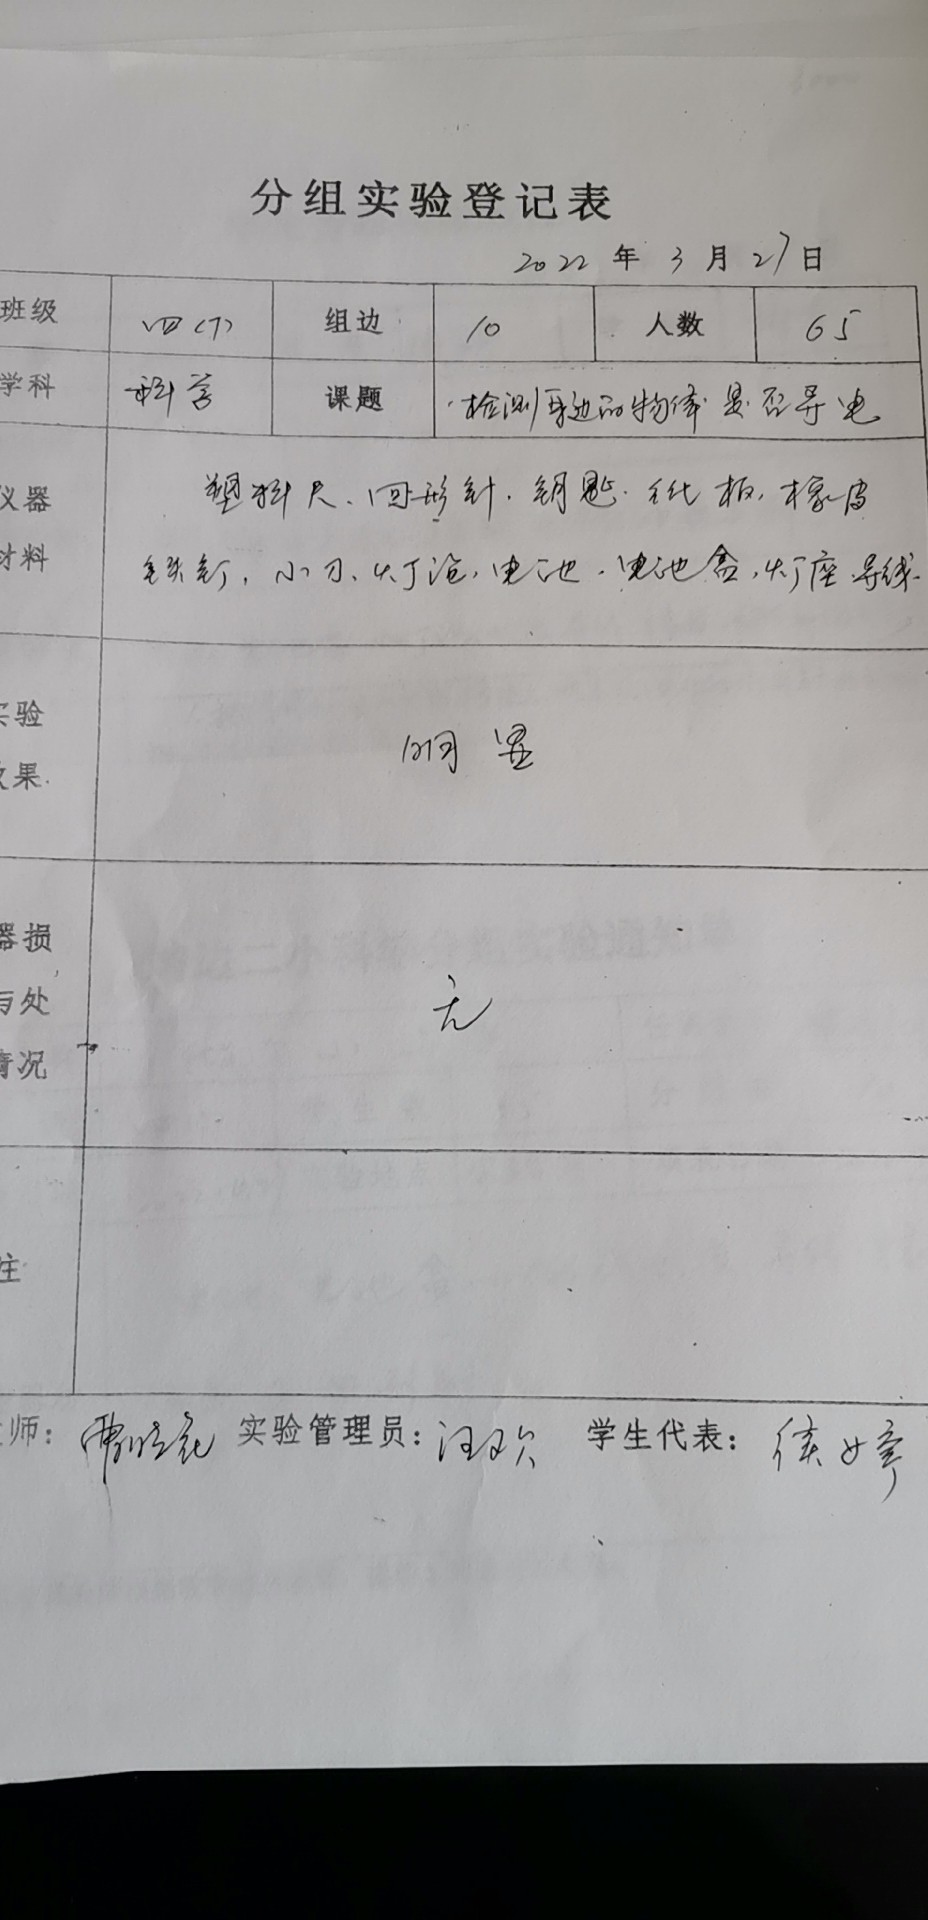 分组实验登记表
2022 年 3 月 27 日
班级 四(7) 组边 10 人数 65
学科 科学 课题 检测身边的物体是否导电
仪器 塑料尺、回形针、钥匙、板、橡皮
材料 铁钉、小刀、灯泡、电池、电池盒、灯座、导线
实验
效果 明显
器损
与处 无
情况
注
师: 实验管理员: 汪欢 学生代表: 侯婷